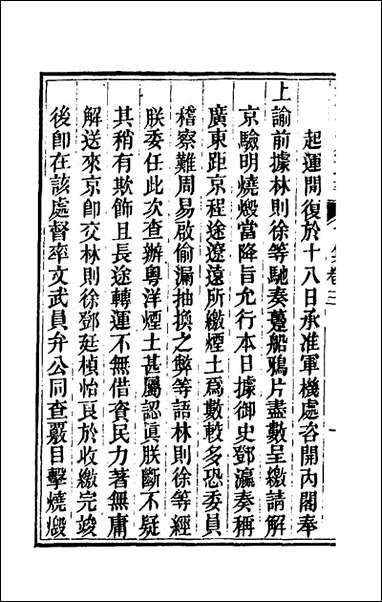 起運間復於十八日承准軍機處咨開內閣奉
上諭前據林則徐等馳奏躉船鴉片盡數呈繳請解
京驗明燒燬當降旨允行本日據御史鄧瀛奏稱
廣東距京程途遼遠所繳煙土爲數較多恐委員
稽察難周易啟偷漏抽換之弊等語林則徐等經
朕委任此次查辦粵洋煙土甚屬認眞朕斷不疑
其稍有欺飾且長途轉運不無借資民力著無庸
解送來京即交林則徐鄧廷楨怡良於收繳完竣
後卽在該處督率文武員弁公同查覈目擊燒燬
卷三